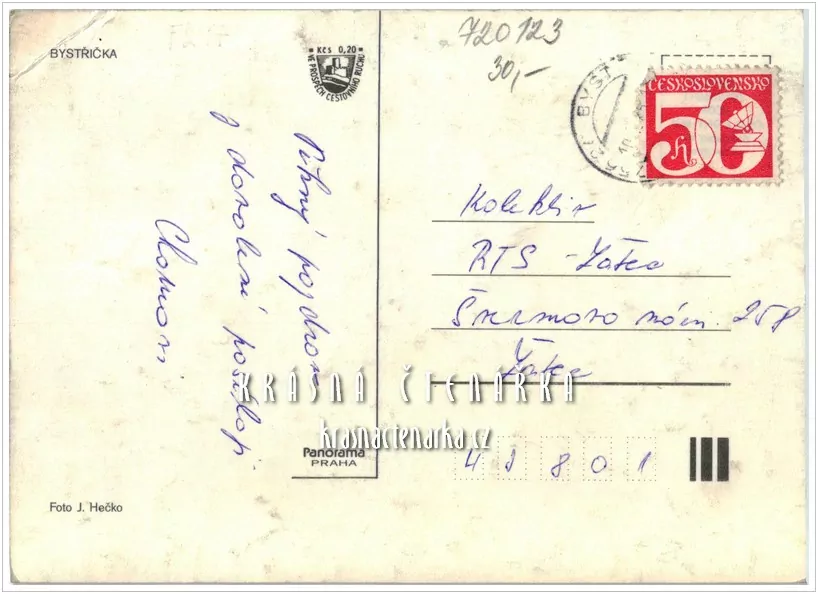 BYSTŘIČKA
Kčs 0,20
VE PROSPĚCH CESTOVNÍHO RUCHU
720123
30,-
ČESKOSLOVENSKO
50 h
Pěkný pozdrav
z dovolené posílají
Kolektiv
RTS - Žatec
Šnermovo nám. 258
Žatec
KRÁSNÁ ČTENÁRKA
krasnactenarka.cz
Panorama
PRAHA
438 01
Foto J. Hečko